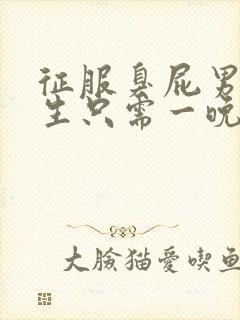 征服臭屁男
生只需一晚
大臉猫愛喫鱼